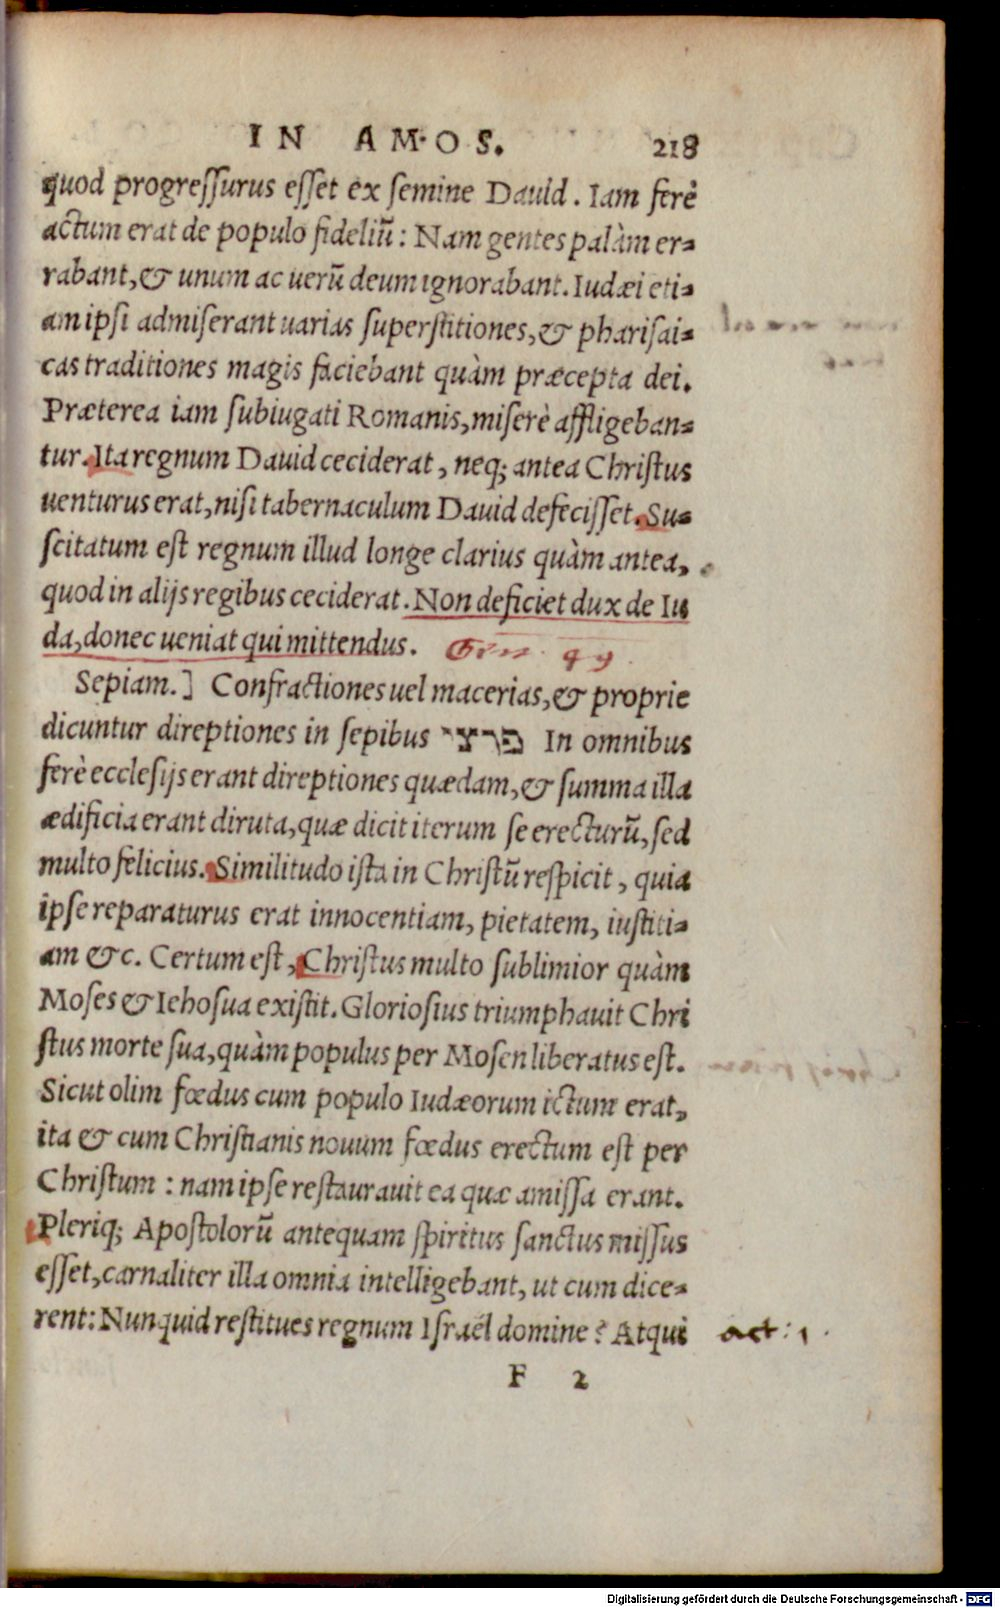 IN AMOS. 218
quod progressurus esset ex semine Dauid. Iam ferè
actum erat de populo fideliũ: Nam gentes palàm er=
rabant, & unum ac uerũ deum ignorabant. Iudæi eti=
am ipsi admiserant uarias superstitiones, & pharisai=
cas traditiones magis faciebant quàm præcepta dei.
Præterea iam subiugati Romanis, miserè affligeban=
tur. Ita regnum Dauid ceciderat, neq; antea Christus
uenturus erat, nisi tabernaculum Dauid defecisset. Su=
scitatum est regnum illud longe clarius quàm antea,
quod in alijs regibus ceciderat. Non deficiet dux de Iu
da, donec ueniat qui mittendus. Gen. 49
Sepiam.] Confractiones uel macerias, & proprie
dicuntur direptiones in sepibus פרצי In omnibus
ferè ecclesijs erant direptiones quædam, & summa illa
ædificia erant diruta, quæ dicit iterum se erecturũ, sed
multo felicius. Similitudo ista in Christũ respicit, quia
ipse reparaturus erat innocentiam, pietatem, iustiti=
am &c. Certum est, Christus multo sublimior quàm
Moses & Iehosua existit. Gloriosius triumphauit Chri
stus morte sua, quàm populus per Mosen liberatus est.
Sicut olim fœdus cum populo Iudæorum ictum erat,
ita & cum Christianis nouum fœdus erectum est per
Christum: nam ipse restaurauit ea quæ amissa erant.
Pleriq; Apostolorũ antequam spiritus sanctus missus
esset, carnaliter illa omnia intelligebant, ut cum dice=
rent: Nunquid restitues regnum Israël domine? Atqui act: 1
F 2
Digitalisierung gefördert durch die Deutsche Forschungsgemeinschaft - DFG